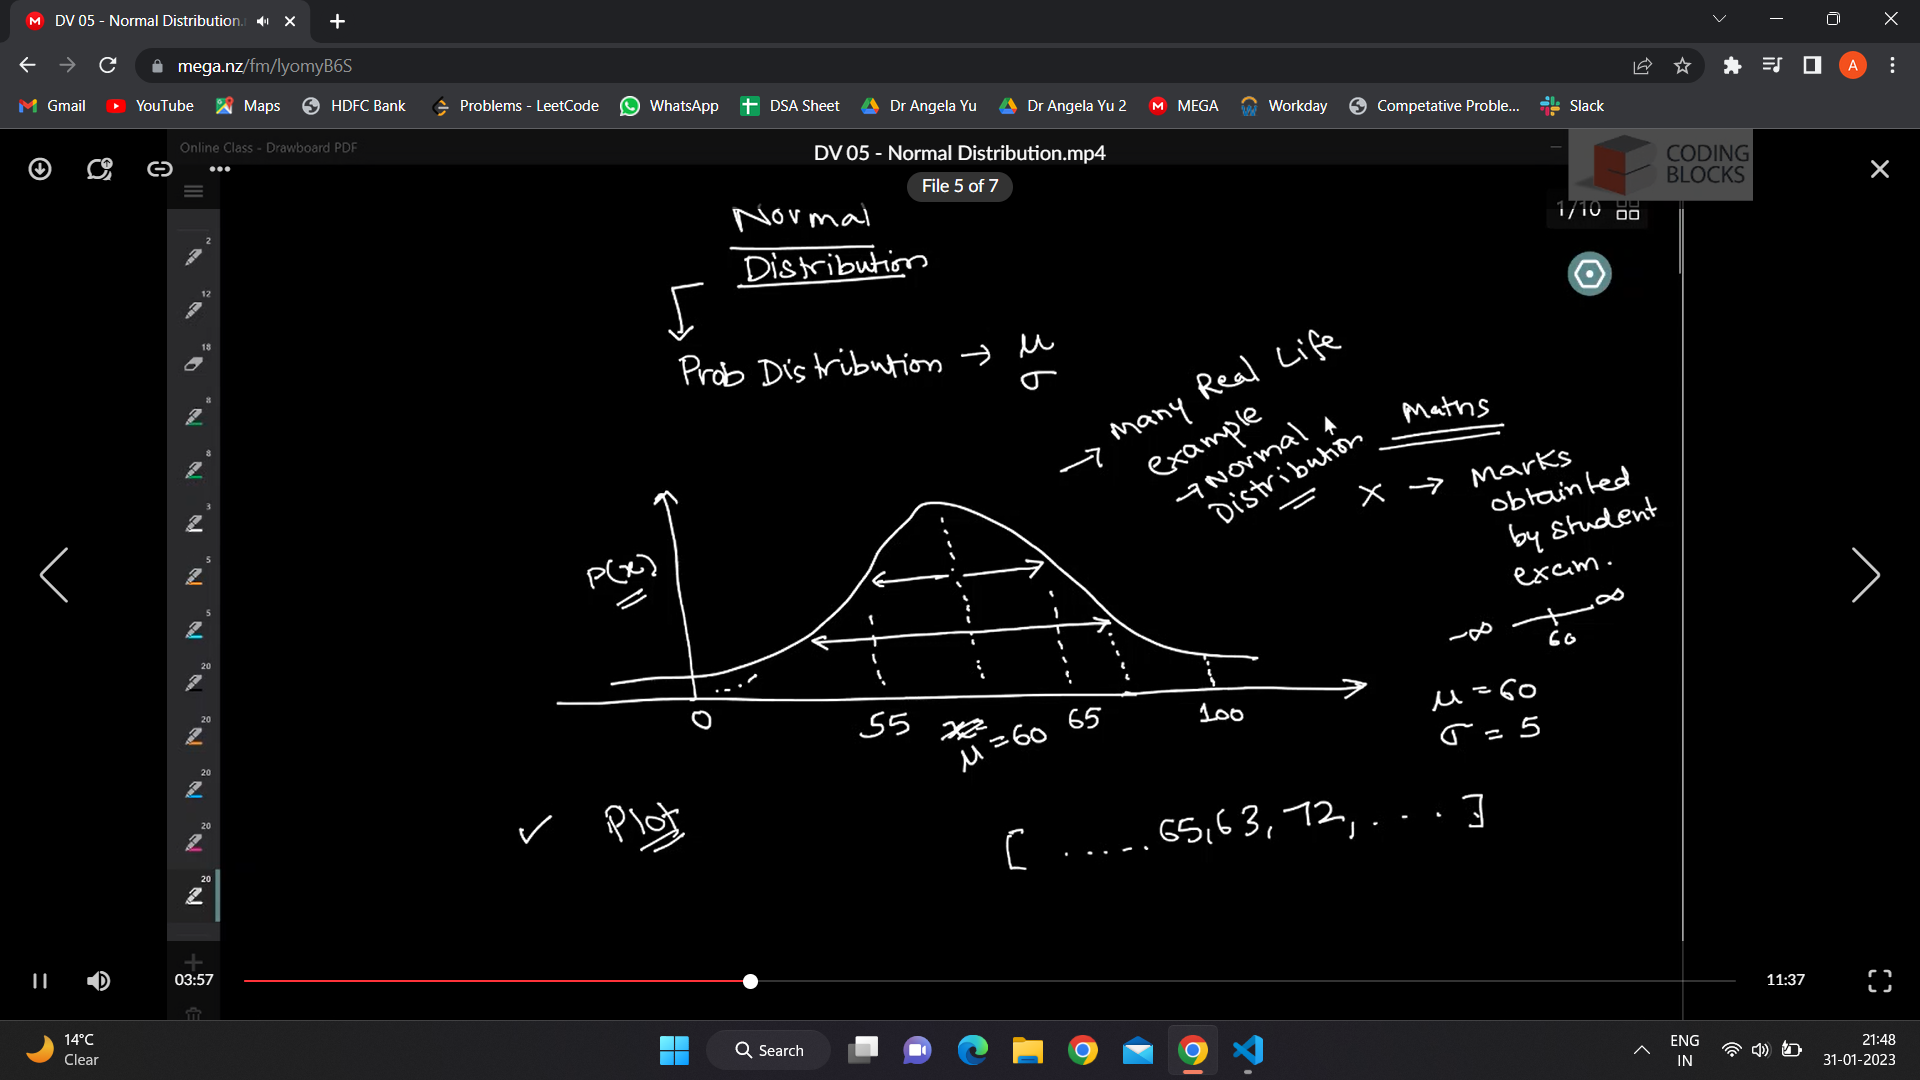 DV 05 - Normal Distribution.
mega.nz/fm/lyomyB6S
A
Gmail
YouTube
Maps
HDFC Bank
Problems - LeetCode
WhatsApp
DSA Sheet
Dr Angela Yu
Dr Angela Yu 2
MEGA
Workday
Competative Proble...
Slack
Online Class - Drawboard PDF
DV 05 - Normal Distribution.mp4
File 5 of 7
CODING
BLOCKS
1/10
2
12
18
8
8
3
5
5
20
20
20
20
20
Normal
Distribution
Prob Distribution → μ
σ
→ Many Real Life
example
→ Normal
Distribution
Maths
x → Marks
obtainted
by student
exam.
-∞ ∞
60
μ = 60
σ = 5
P(x)
0
55
μ = 60
65
100
✓ Plot
[ ...... 65, 63, 72, .... ]
03:57
11:37
14°C
Clear
Search
ENG
IN
21:48
31-01-2023